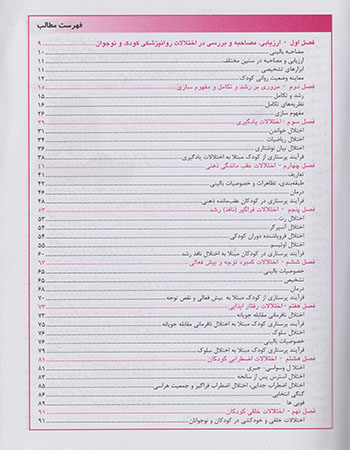 فهرست مطالب
فصل اول - ارزیابی، مصاحبه و بررسی در اختلالات روانپزشکی کودک و نوجوان ۹
مصاحبه بالینی ۱۰
ارزیابی و مصاحبه در سنین مختلف ۱۱
ابزارهای تشخیصی ۱۲
معاینه وضعیت روانی کودک ۱۲
فصل دوم - مروری بر رشد و تکامل و مفهوم سازی ۱۵
رشد و تکامل ۱۵
نظریه‌های تکامل ۱۶
مفهوم سازی ۲۶
فصل سوم - اختلالات یادگیری ۲۹
اختلال خواندن ۳۱
اختلال ریاضیات ۳۴
اختلال بیان نوشتاری ۳۶
فرآیند پرستاری از کودک مبتلا به اختلالات یادگیری ۳۸
فصل چهارم - اختلالات عقب ماندگی ذهنی ۴۱
تعاریف ۴۱
طبقه‌بندی، تظاهرات و خصوصیات بالینی ۴۲
درمان ۴۶
فرآیند پرستاری در کودکان عقب‌مانده ذهنی ۴۸
فصل پنجم - اختلالات فراگیر (نافذ) رشد ۵۳
اختلال رت ۵۳
اختلال آسپرگر ۵۴
اختلال فروپاشنده دوران کودکی ۵۴
اختلال اوتیسم ۵۵
فرآیند پرستاری در کودکان مبتلا به اختلال نافذ رشد ۶۰
فصل ششم - اختلالات کمبود توجه و بیش فعالی ۶۳
خصوصیات بالینی ۶۵
تشخیص ۶۵
درمان ۶۸
فرآیند پرستاری از کودک مبتلا به بیش فعالی و نقص توجه ۷۰
فصل هفتم - اختلالات رفتار ایذایی ۷۳
اختلال نافرمانی مقابله جویانه ۷۳
فرآیند پرستاری از کودک مبتلا به اختلال نافرمانی مقابله جویانه ۷۵
اختلال سلوک ۷۶
خصوصیات بالینی ۷۶
فرآیند پرستاری از کودک مبتلا به اختلال سلوک ۷۹
فصل هشتم - اختلالات اضطرابی کودکان ۸۱
اختلال وسواسی- جبری ۸۱
اختلال استرس پس از سانحه ۸۳
اختلال اضطراب جدایی، اختلال اضطراب فراگیر و جمعیت هراسی ۸۵
گنگی انتخابی ۸۶
فوبی ها ۸۹
فصل نهم - اختلالات خلقی کودکان ۹۱
اختلالات خلقی و خودکشی در کودکان و نوجوانان ۹۱